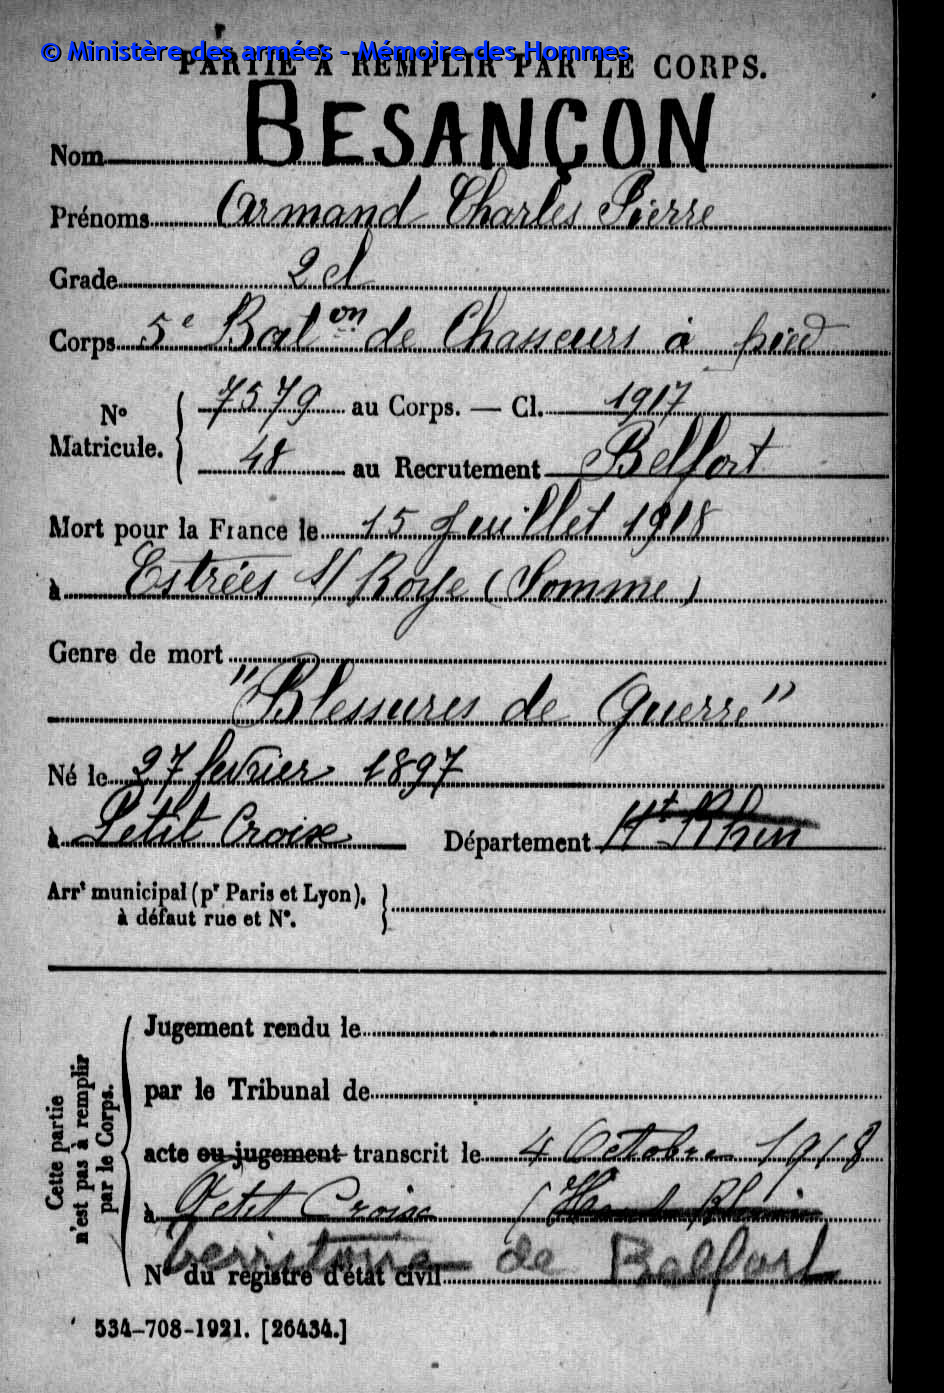 © Ministère des armées - Mémoire des Hommes
PARTIE À REMPLIR PAR LE CORPS.
Nom BESANÇON
Prénoms Armand Charles Pierre
Grade 2 cl
Corps 5e Baton de Chasseurs à pied
N° Matricule. { 7579 au Corps. — Cl. 1917
48 au Recrutement Belfort
Mort pour la France le 15 Juillet 1918
à Estrées s/ Roye (Somme)
Genre de mort
"Blessures de Guerre"
Né le 27 février 1897
à Petit Croix Département Ht Rhin
Arrt municipal (pr Paris et Lyon), à défaut rue et N°. }
Cette partie n'est pas à remplir par le Corps.
Jugement rendu le
par le Tribunal de
acte ou jugement transcrit le 4 Octobre 1918
à Petit Croix (Haut Rhin
territoire de Belfort
N° du registre d'état civil
534-708-1921. [26434.]